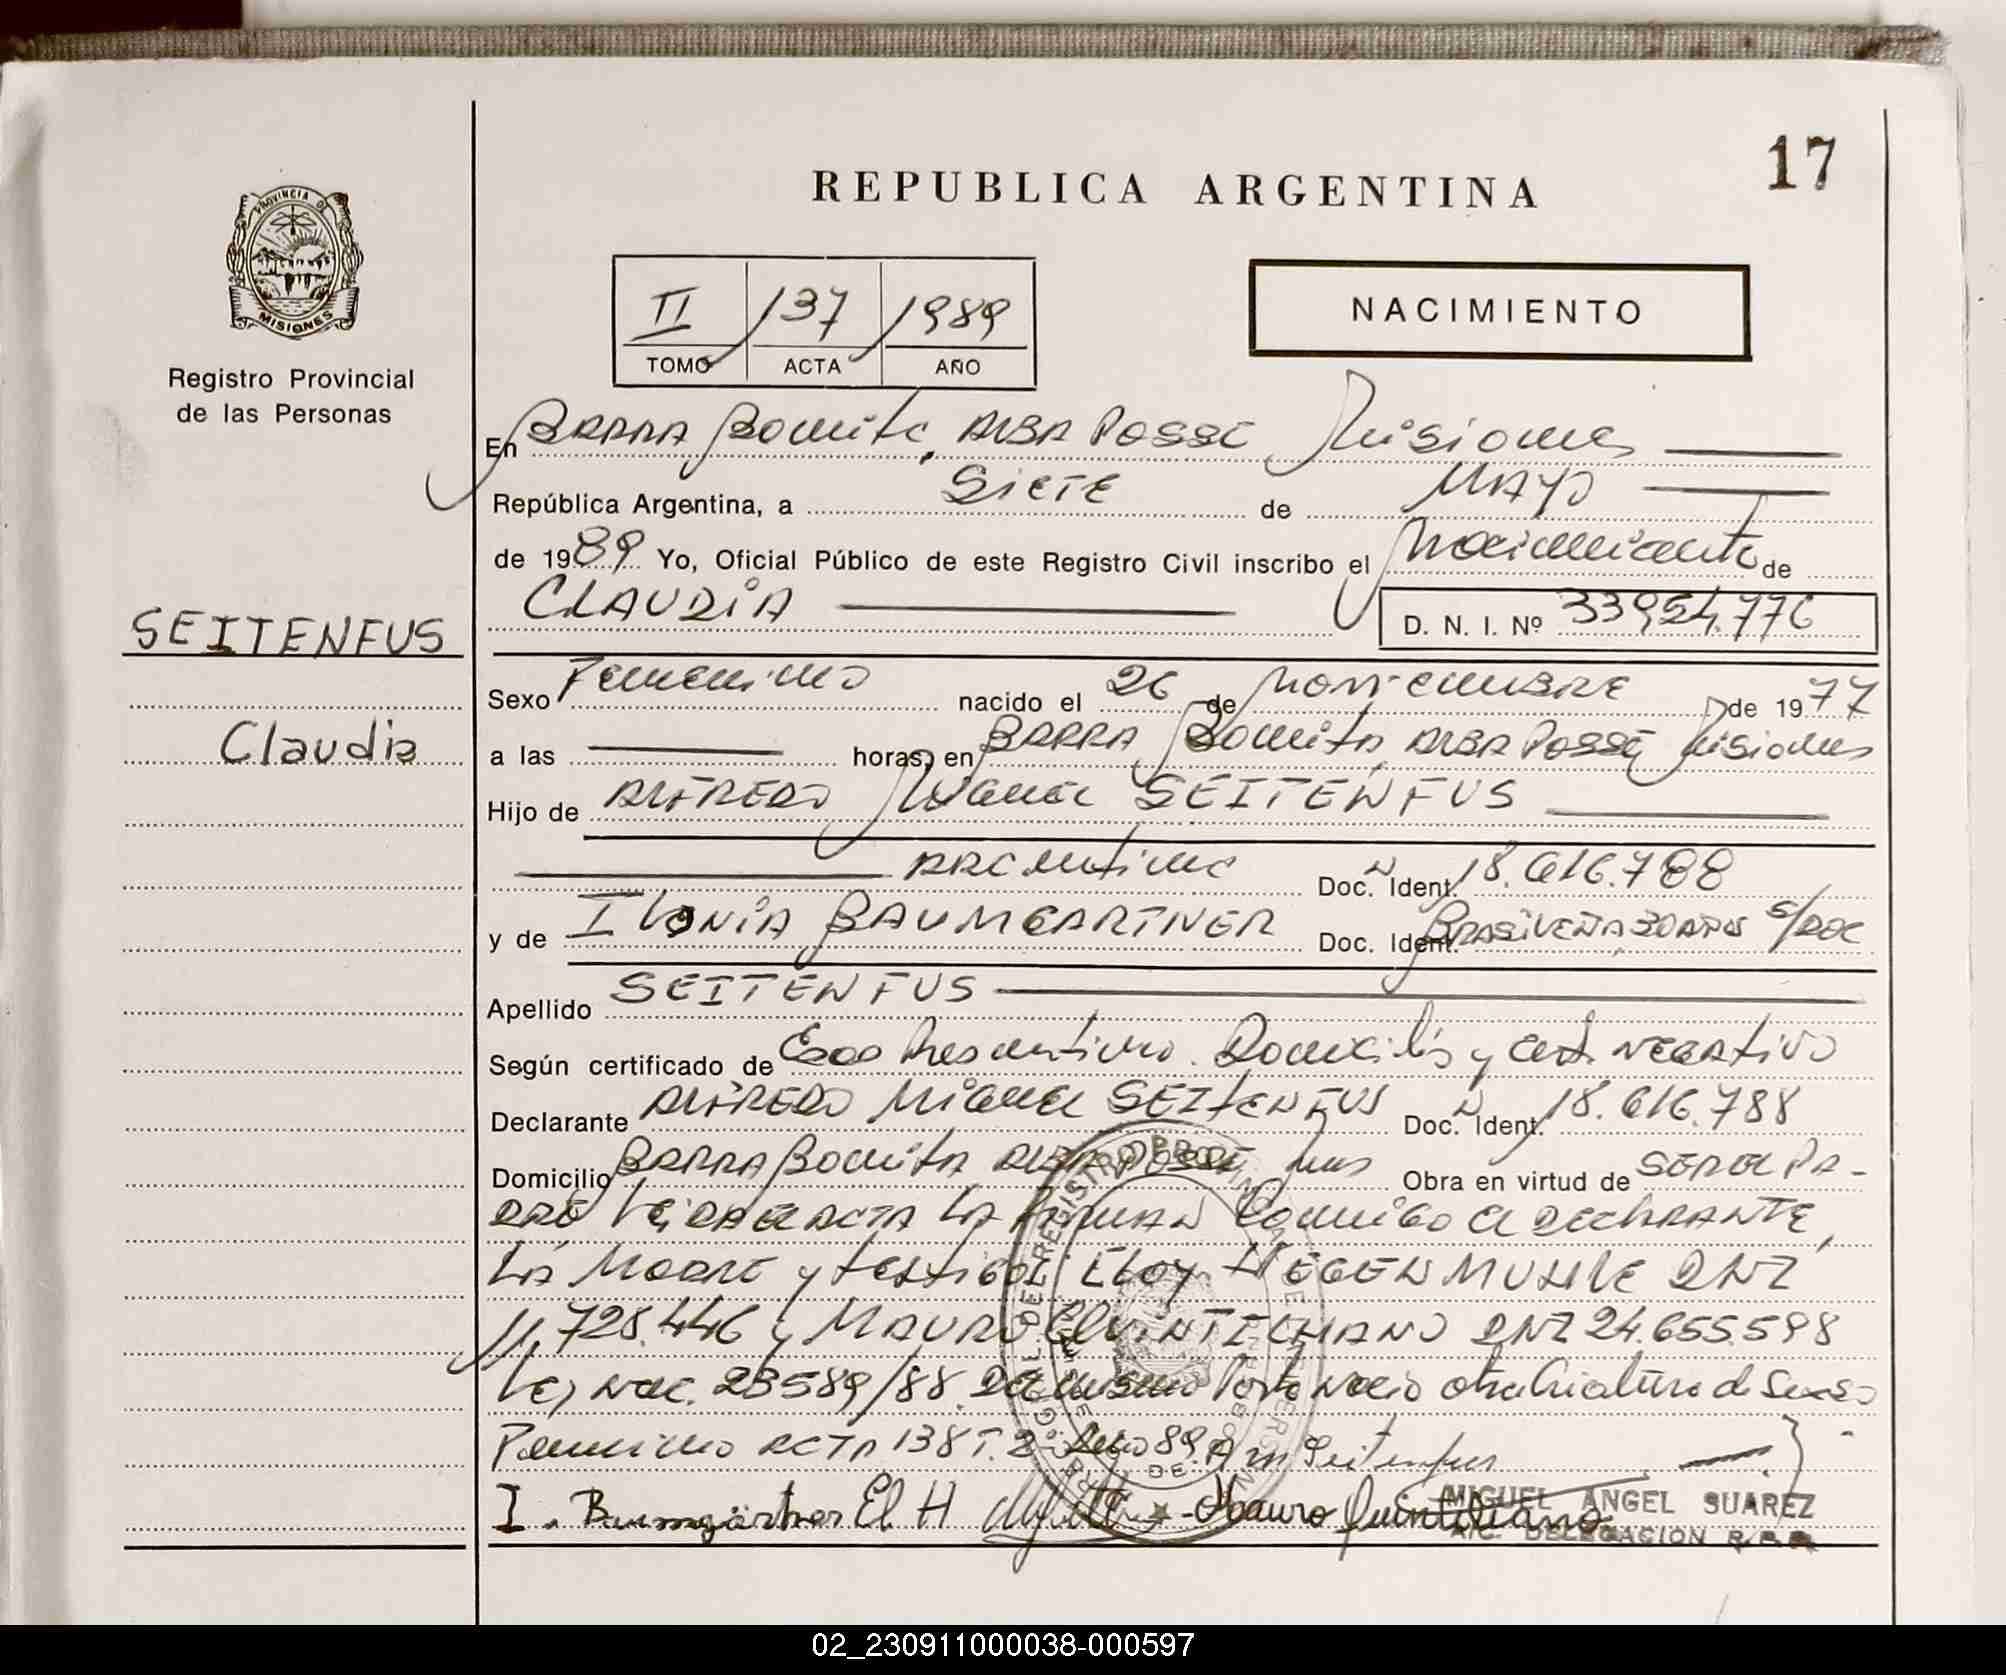 17
REPUBLICA ARGENTINA
PROVINCIA DE
MISIONES
Registro Provincial
de las Personas
II 137 1989
TOMO ACTA AÑO
NACIMIENTO
En BARRA Bonita, ALBA POSSE Misiones
República Argentina, a SIETE de MAYO
de 1989 Yo, Oficial Público de este Registro Civil inscribo el Nacimiento de
CLAUDIA D. N. I. Nº 33954.776
SEITENFUS
Claudia
Sexo Femenino nacido el 26 de NOVIEMBRE de 1977
a las horas, en BARRA Bonita, ALBA POSSE Misiones
Hijo de ALFREDO Miguel SEITENFUS
ARGentino Doc. Ident. N 18.616.788
y de ILONIA BAUMGARTNER Doc. Ident. BRASILEÑA 30 AÑOS S/DOC
Apellido SEITENFUS
Según certificado de Edad Presuntiva. Domicilio y cert. NEGATIVO
Declarante ALFREDO Miguel SEITENFUS Doc. Ident. N 18.616.788
Domicilio BARRA Bonita ALBA POSSE Mnes Obra en virtud de SER EL PA-
DRE Leida el ACTA LA Firman Conmigo el DECLARANTE,
LA MADRE y testigos Eloy HEGENMUHLE DNI
11.728.446 y MAURO QUINTILIANO DNI 24.655.598
Ley Nac. 23589/88. Del mismo Parto Nacio otra Criatura de Sexo
Femenino ACTA 138 T. 2 Año 89. A m Seitenfus
I. Baumgärtner El H Mauro Quintiliano
MIGUEL ANGEL SUAREZ
A/C. DELEGACION R.P.P.
02_230911000038-000597